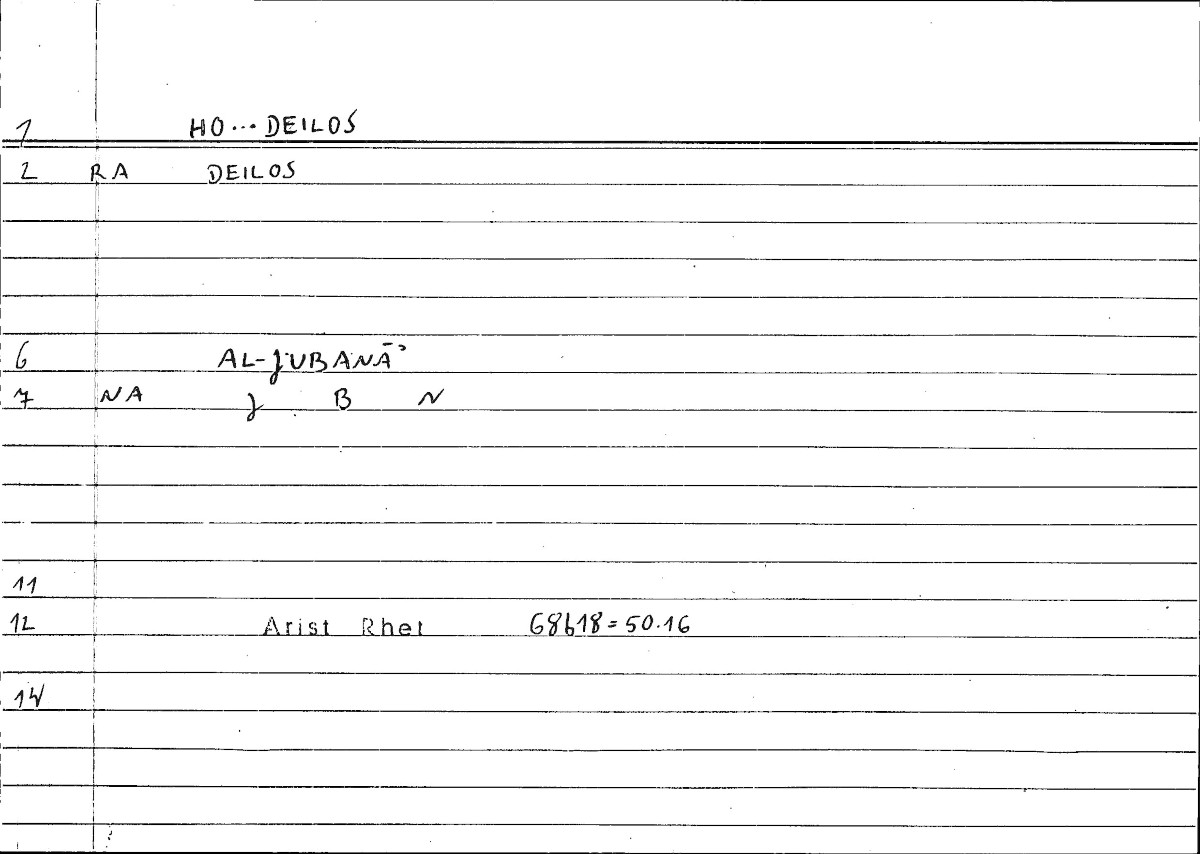 1 HO... DEILOS
2 RA DEILOS
6 AL-JUBANĀʾ
7 NA J B N
11
12 Arist Rhet 68b18=50.16
14